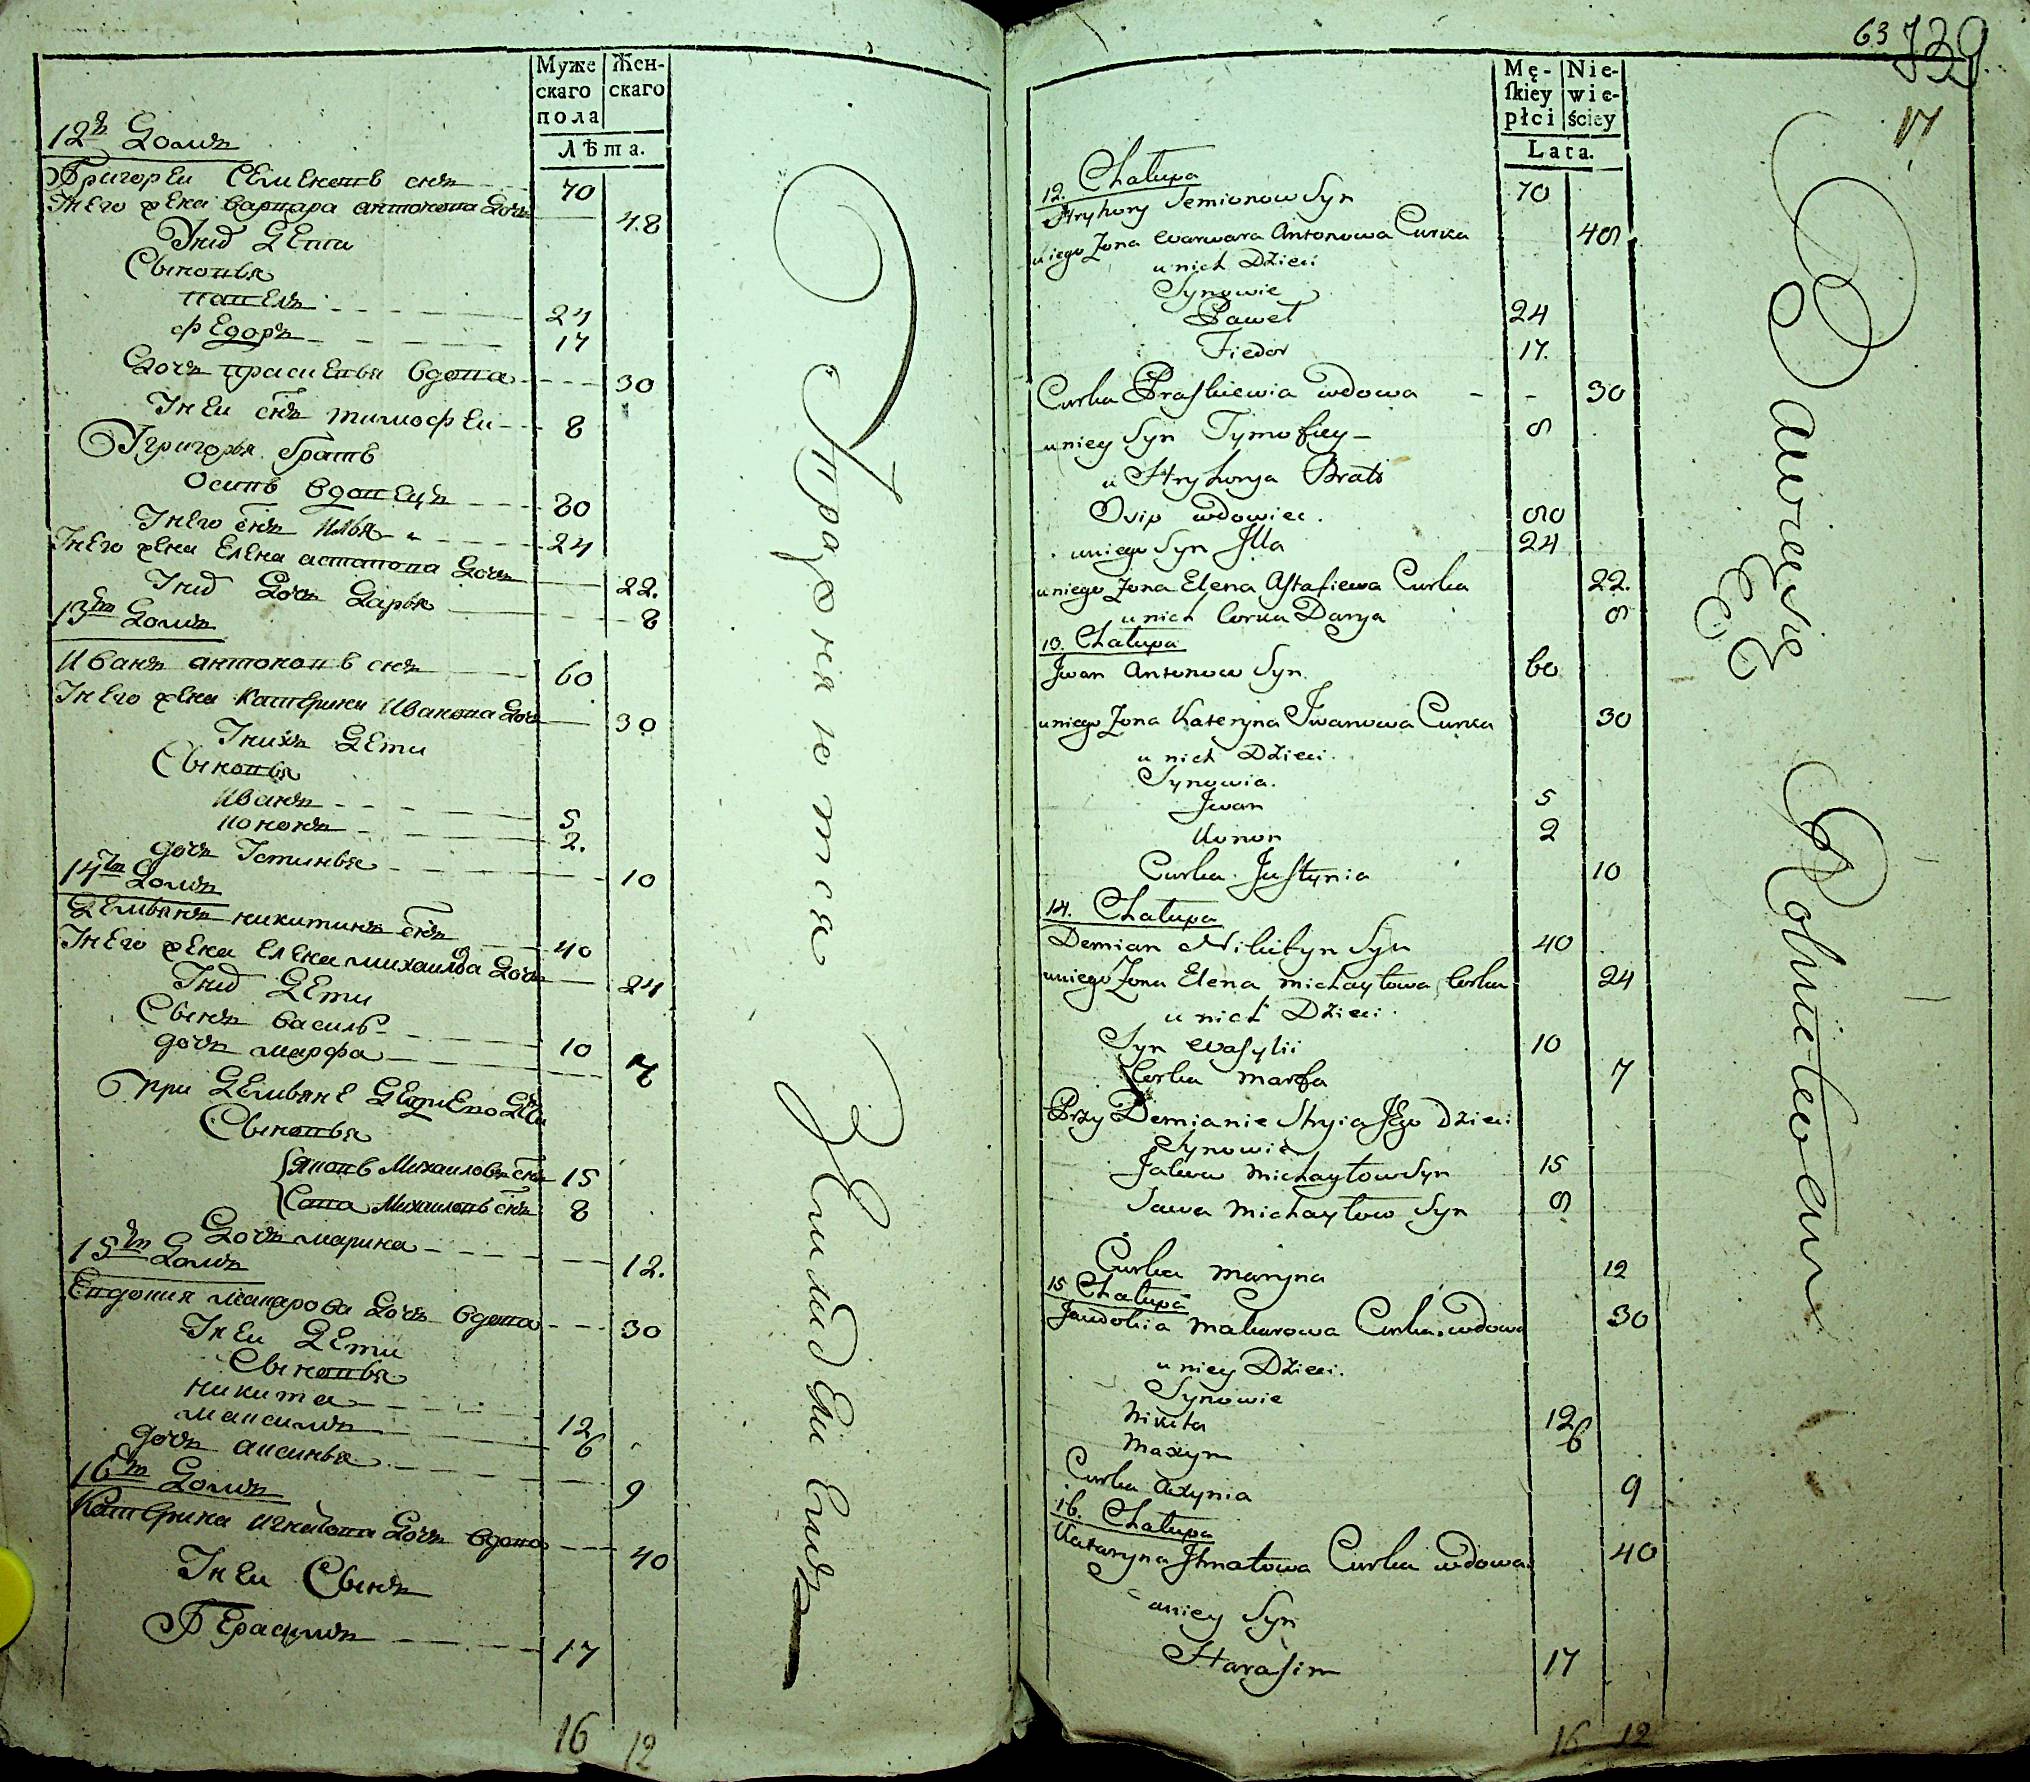 Муже
скаго
пола
Жен-
скаго
Лѣта.
12й Домъ
Григореи Семеновъ снъ 70
Унего жена варвара антонова Дочь 48
Унихъ Дети
Сыновья
павелъ 24
федоръ 17
Дочь прасковья вдова 30
Унеи снъ тимофеи 8
Угригорья братъ
Осипъ вдовецъ 80
Унего снъ Илья 24
Унего жена Елена астапова Дочь 22.
Унихъ Дочь Дарья 8
13й Домъ
Иванъ антоновъ снъ 60
Унего жена Катерина Иванова Дочь 30
Унихъ Дети
Сыновья
Иванъ 5
кононъ 2.
дочь Устинья 10
14й Домъ
Демьянъ никитинъ снъ 40
Унего жена Елена михаилова Дочь 24
Унихъ Дети
Сынъ василь 10
дочь марфа 7
при Демьяне
Сыновья
Яковъ Михаиловъ снъ 15
Сава Михаиловъ снъ 8
Дочь марина 12.
15й Домъ
Евдокия макарова Дочь вдова 30
Унеи Дети
Сыновья
никита 12
максимъ 6
дочь аксинья 9
16й Домъ
Катерина игнатова Дочь вдова 40
Унеи Сынъ
Герасимъ 17
16 12
Упражняются
63 739
17
Mę-
skiey
płci
Nie-
wie-
ściey
Lata.
12. Chałupa
Hryhory Semionow Syn 70
uniego Zona Warwara Antonowa Curka 48
unich Dzieci
Synowie
Paweł 24
Fiedor 17.
Curka Praskiewia wdowa 30
uniey Syn Tymofiey 8
u Hryhorya Brat
Osip wdowiec. 80
uniego Syn Illa 24
uniego Zona Elena Astafiewa Curka 22.
unich Corka Darya 8
13. Chałupa
Iwan Antonow Syn 60
uniego Zona Kateryna Iwanowa Curka 30
u nich Dzieci.
Synowia.
Iwan 5
Konon 2
Curka Justynia 10
14. Chałupa
Demian Nikityn Syn 40
uniego Zona Elena Michayłowa Corka 24
u nich Dzieci.
Syn Wasylii 10
Corka Marfa 7
Przy Demianie Stryia Jego Dzieci
Synowie
Jakow Michayłow Syn 15
Sawa Michayłow Syn 8
Curka Maryna 12
15 Chałupa
Jewdokia Makarowa Curka wdowa 30
u niey Dzieci.
Synowie
Nikita 12
Maxym 6
Curka Axynia 9
16. Chałupa
Kataryna Ihnatowa Curka wdowa. 40
uniey Syn
Harasim 17
16 12
Bawią się Rolnictwem